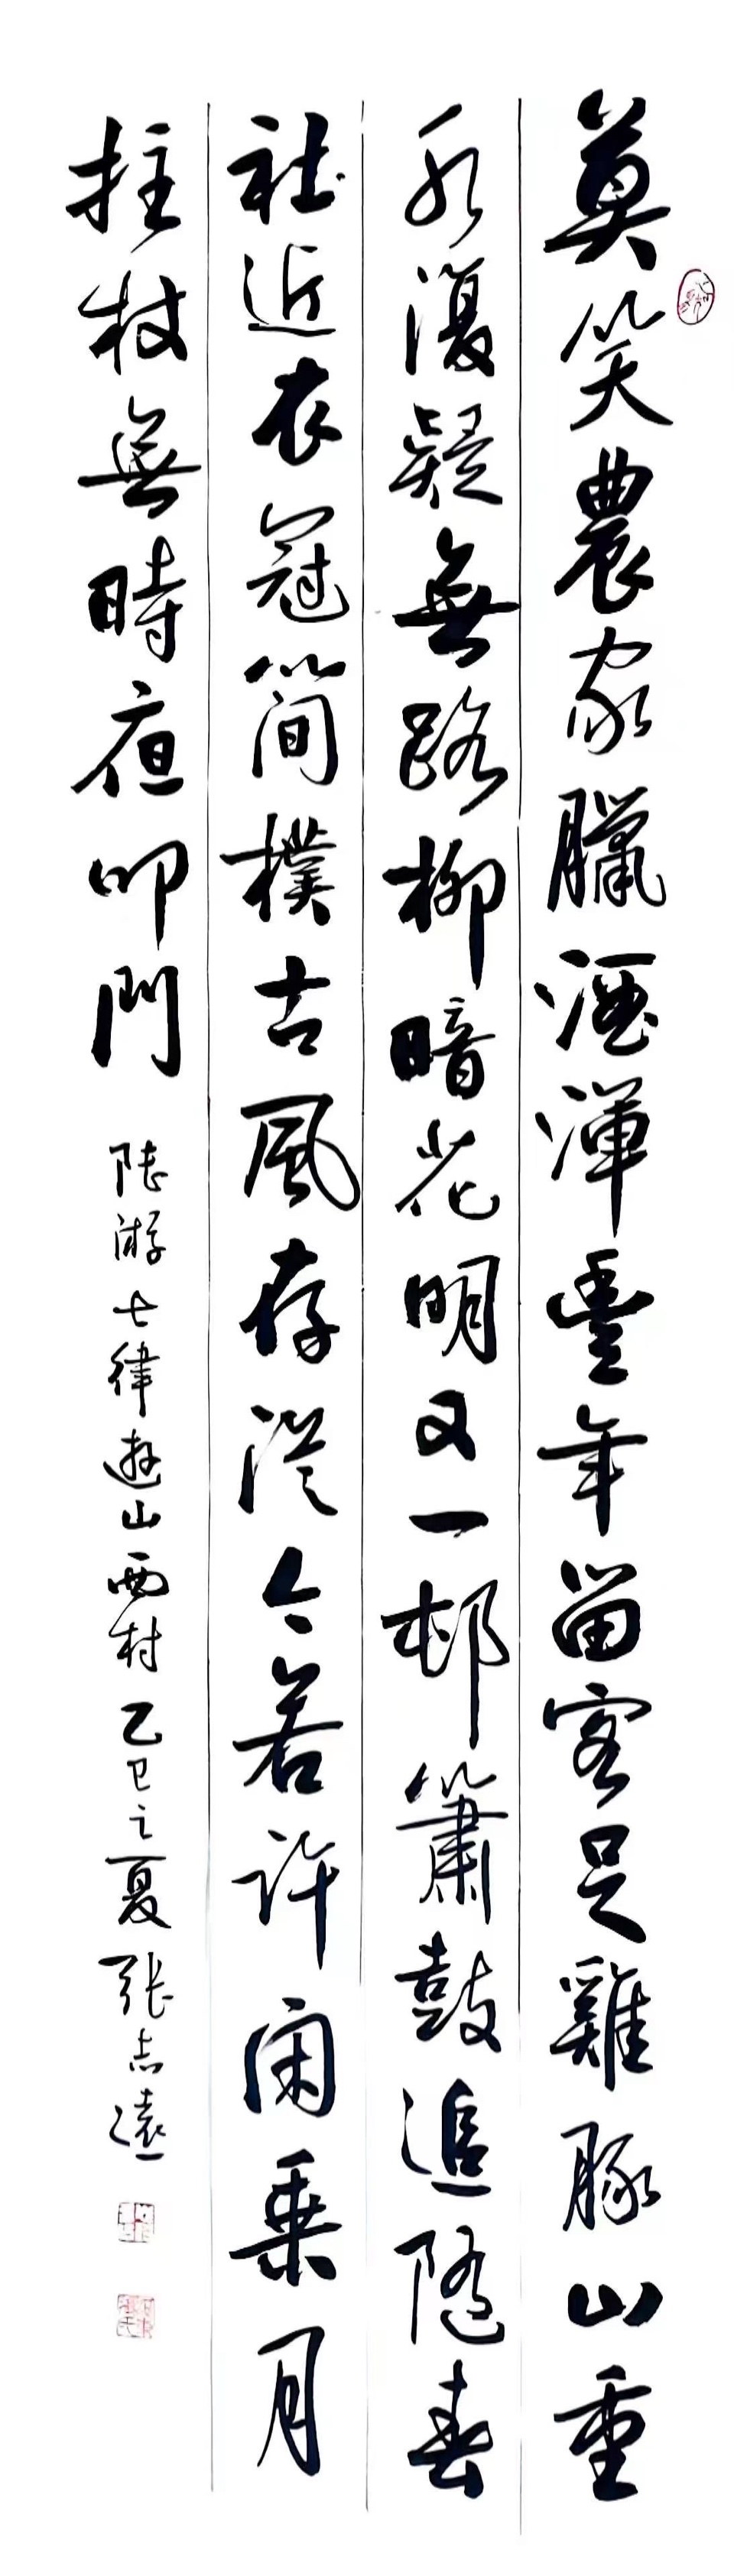 莫笑農家臘酒渾豐年留客足雞豚山重
水復疑無路柳暗花明又一邨簫鼓追隨春
社近衣冠簡樸古風存從今若許閑乘月
拄杖無時夜叩門 陸游七律遊山西村乙巳之夏張志遠